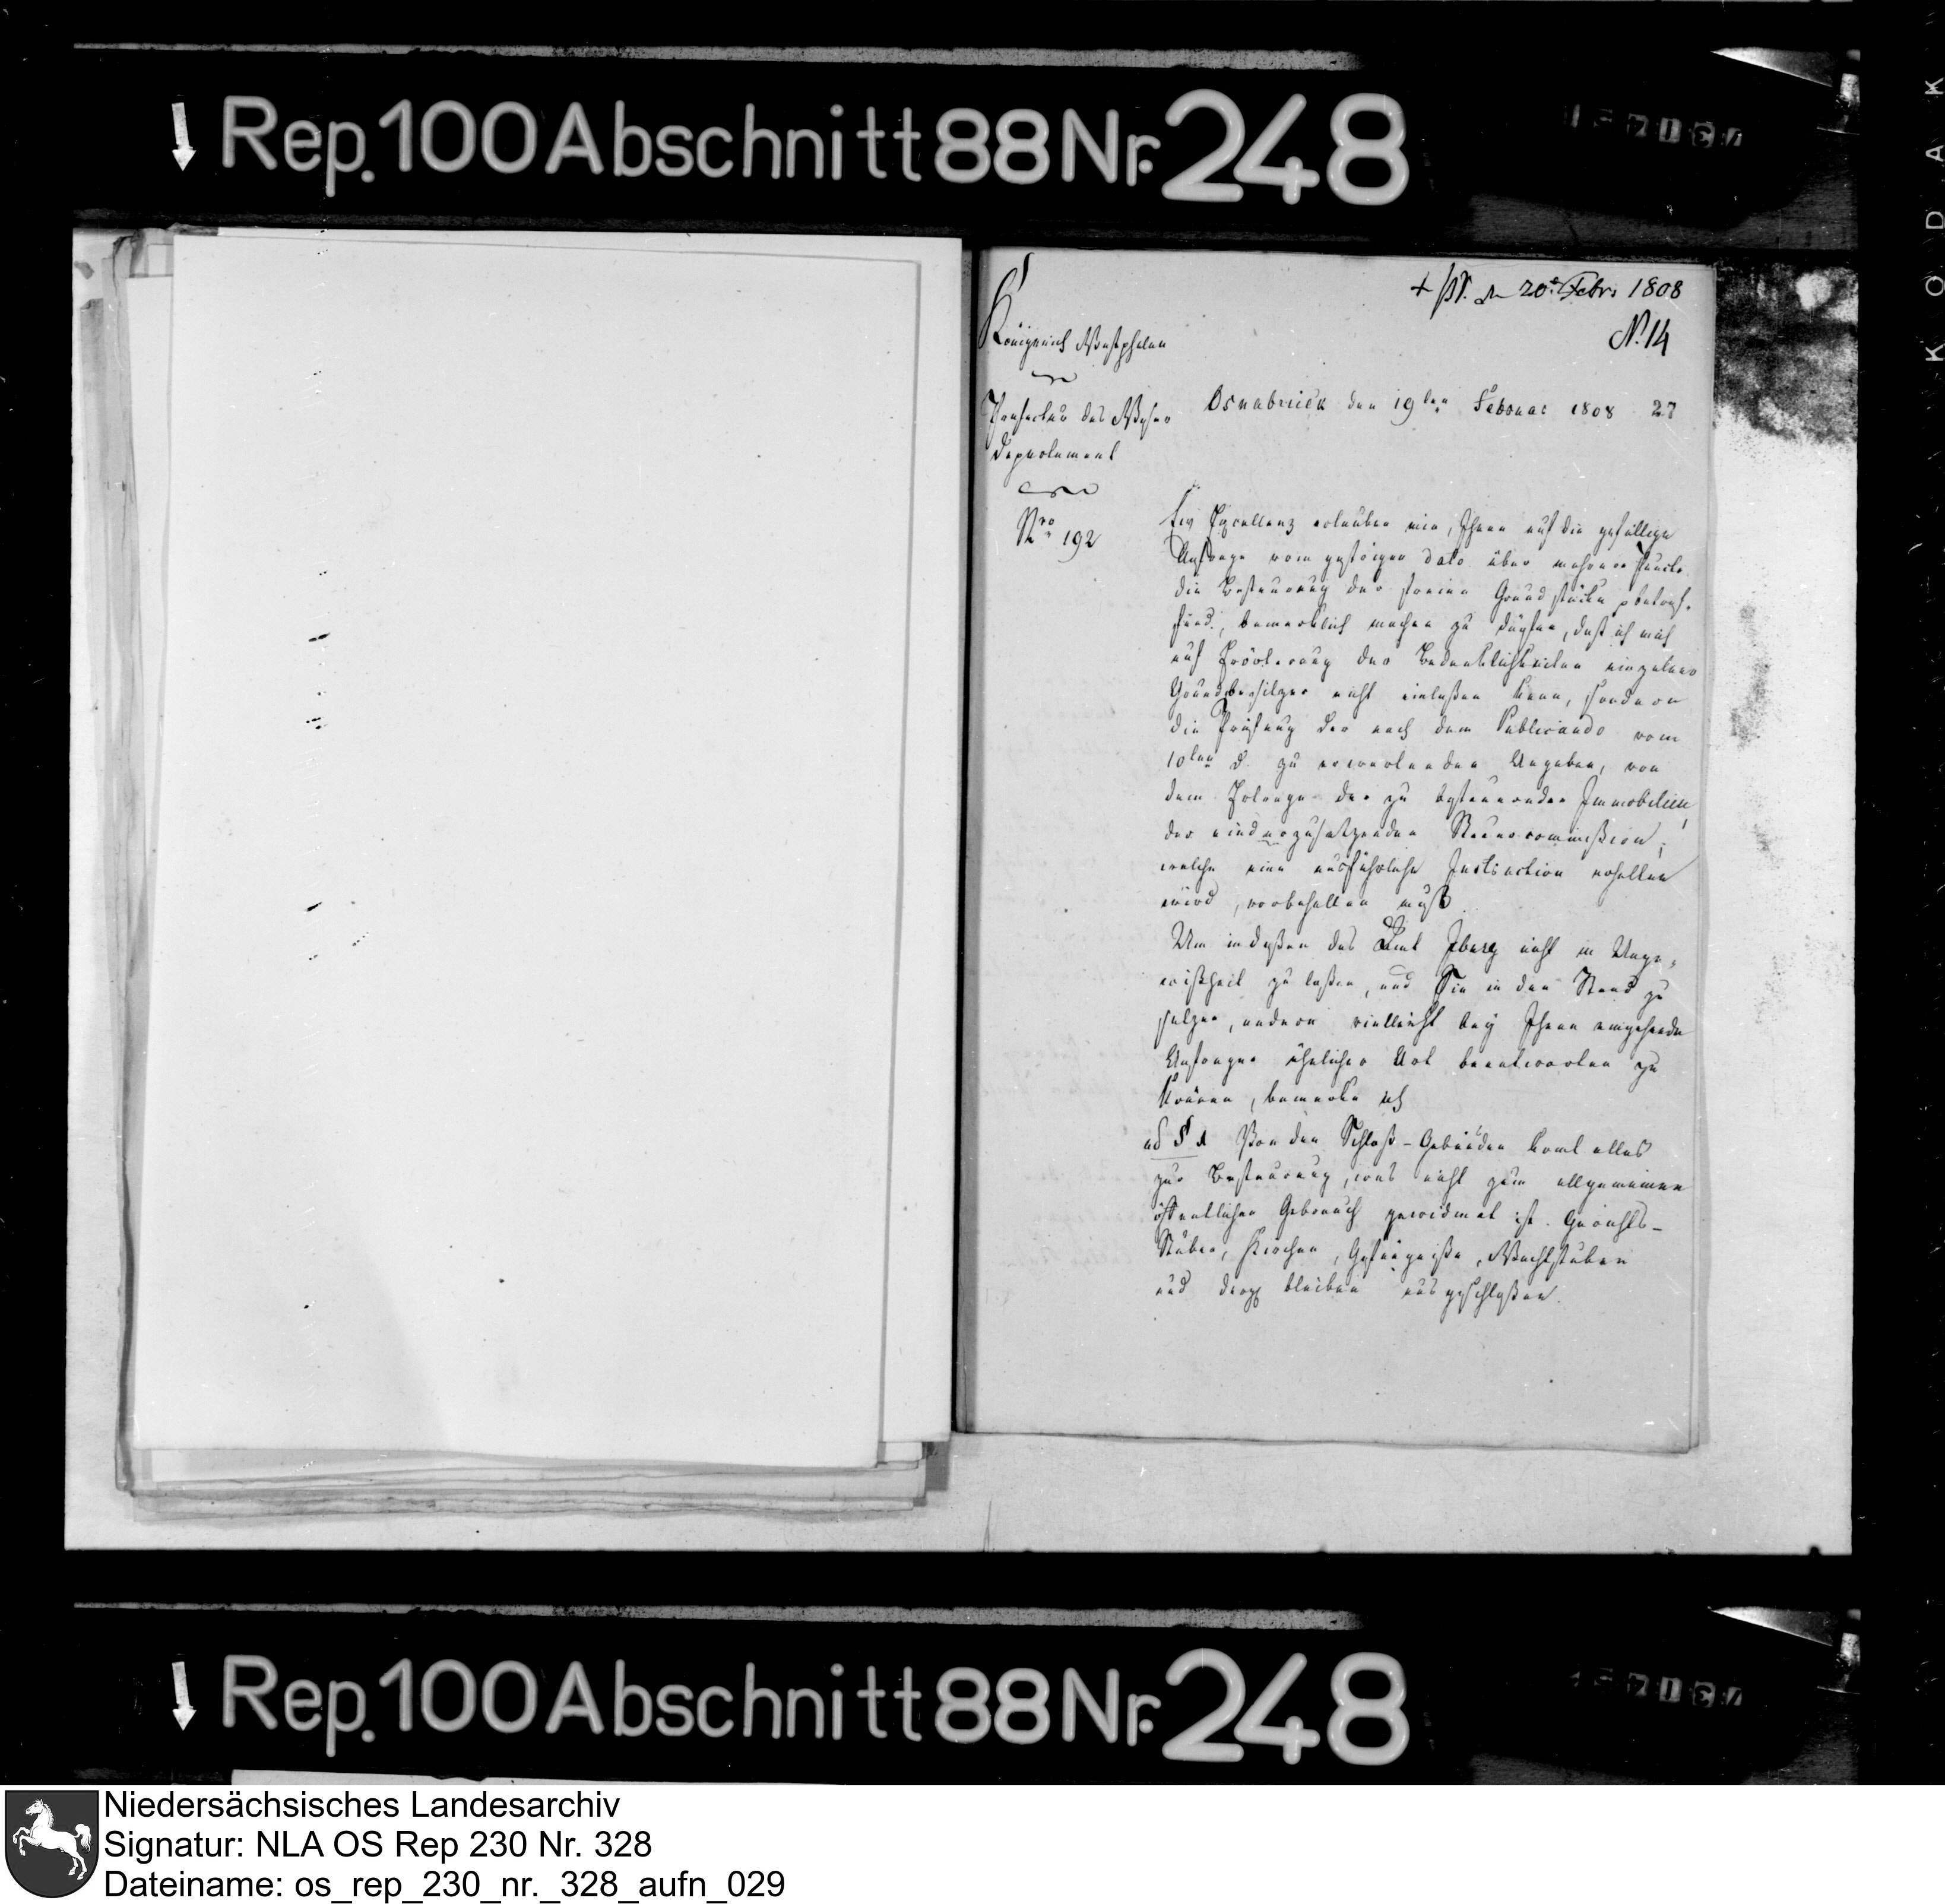 Rep. 100 Abschnitt 88 Nr. 248
KODAK
+ pr. den 20t Febr. 1808
N. 14
Königreich Westphalen
Praefectur des Weser
Departement
Nro 192
Osnabrück den 19ten Februar 1808
27
Ew Excellenz erlauben mir, Ihnen auf die gefällige
Anfrage vom gestrigen dato über mehrere Puncte
die Besteurung der freien Grundstücke
, bemerklich machen zu dürfen, daß ich mich
auf Erörterung der Bedenklichkeiten einzelner
Grundbesitzer nicht einlaßen kann, sondern
die Prüfung der nach dem Publicando vom
10ten d. zu erwartenden Angaben, von
dem Ertrage der zu besteuernden Immobilien,
der niederzusetzenden Steuercommißion,
welche eine ausführliche Instruction erhalten
wird, vorbehalten muß.
Um indeßen das Amt Iburg nicht in Unge-
wißheit zu laßen, und Sie in den Stand zu
setzen, andern vielleicht bey Ihnen eingehende
Anfragen ähnlicher Art beantworten zu
können, bemerke ich
ad § 1 Von den Schloß-Gebäuden komt alles
zur Besteurung, was nicht zum allgemeinen
öffentlichen Gebrauch gewidmet ist. Gerichts-
Stuben, Kirchen, Gefängniße, Wachtstuben
und dergl bleiben ausgeschloßen.
Rep. 100 Abschnitt 88 Nr. 248
Niedersächsisches Landesarchiv
Signatur: NLA OS Rep 230 Nr. 328
Dateiname: os_rep_230_nr._328_aufn_029